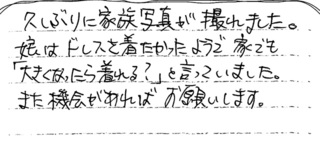 久しぶりに家族写真が撮れました。
娘はドレスを着たかったようで家でも
「大きくなったら着れる？」と言っていました。
また機会があればお願いします。